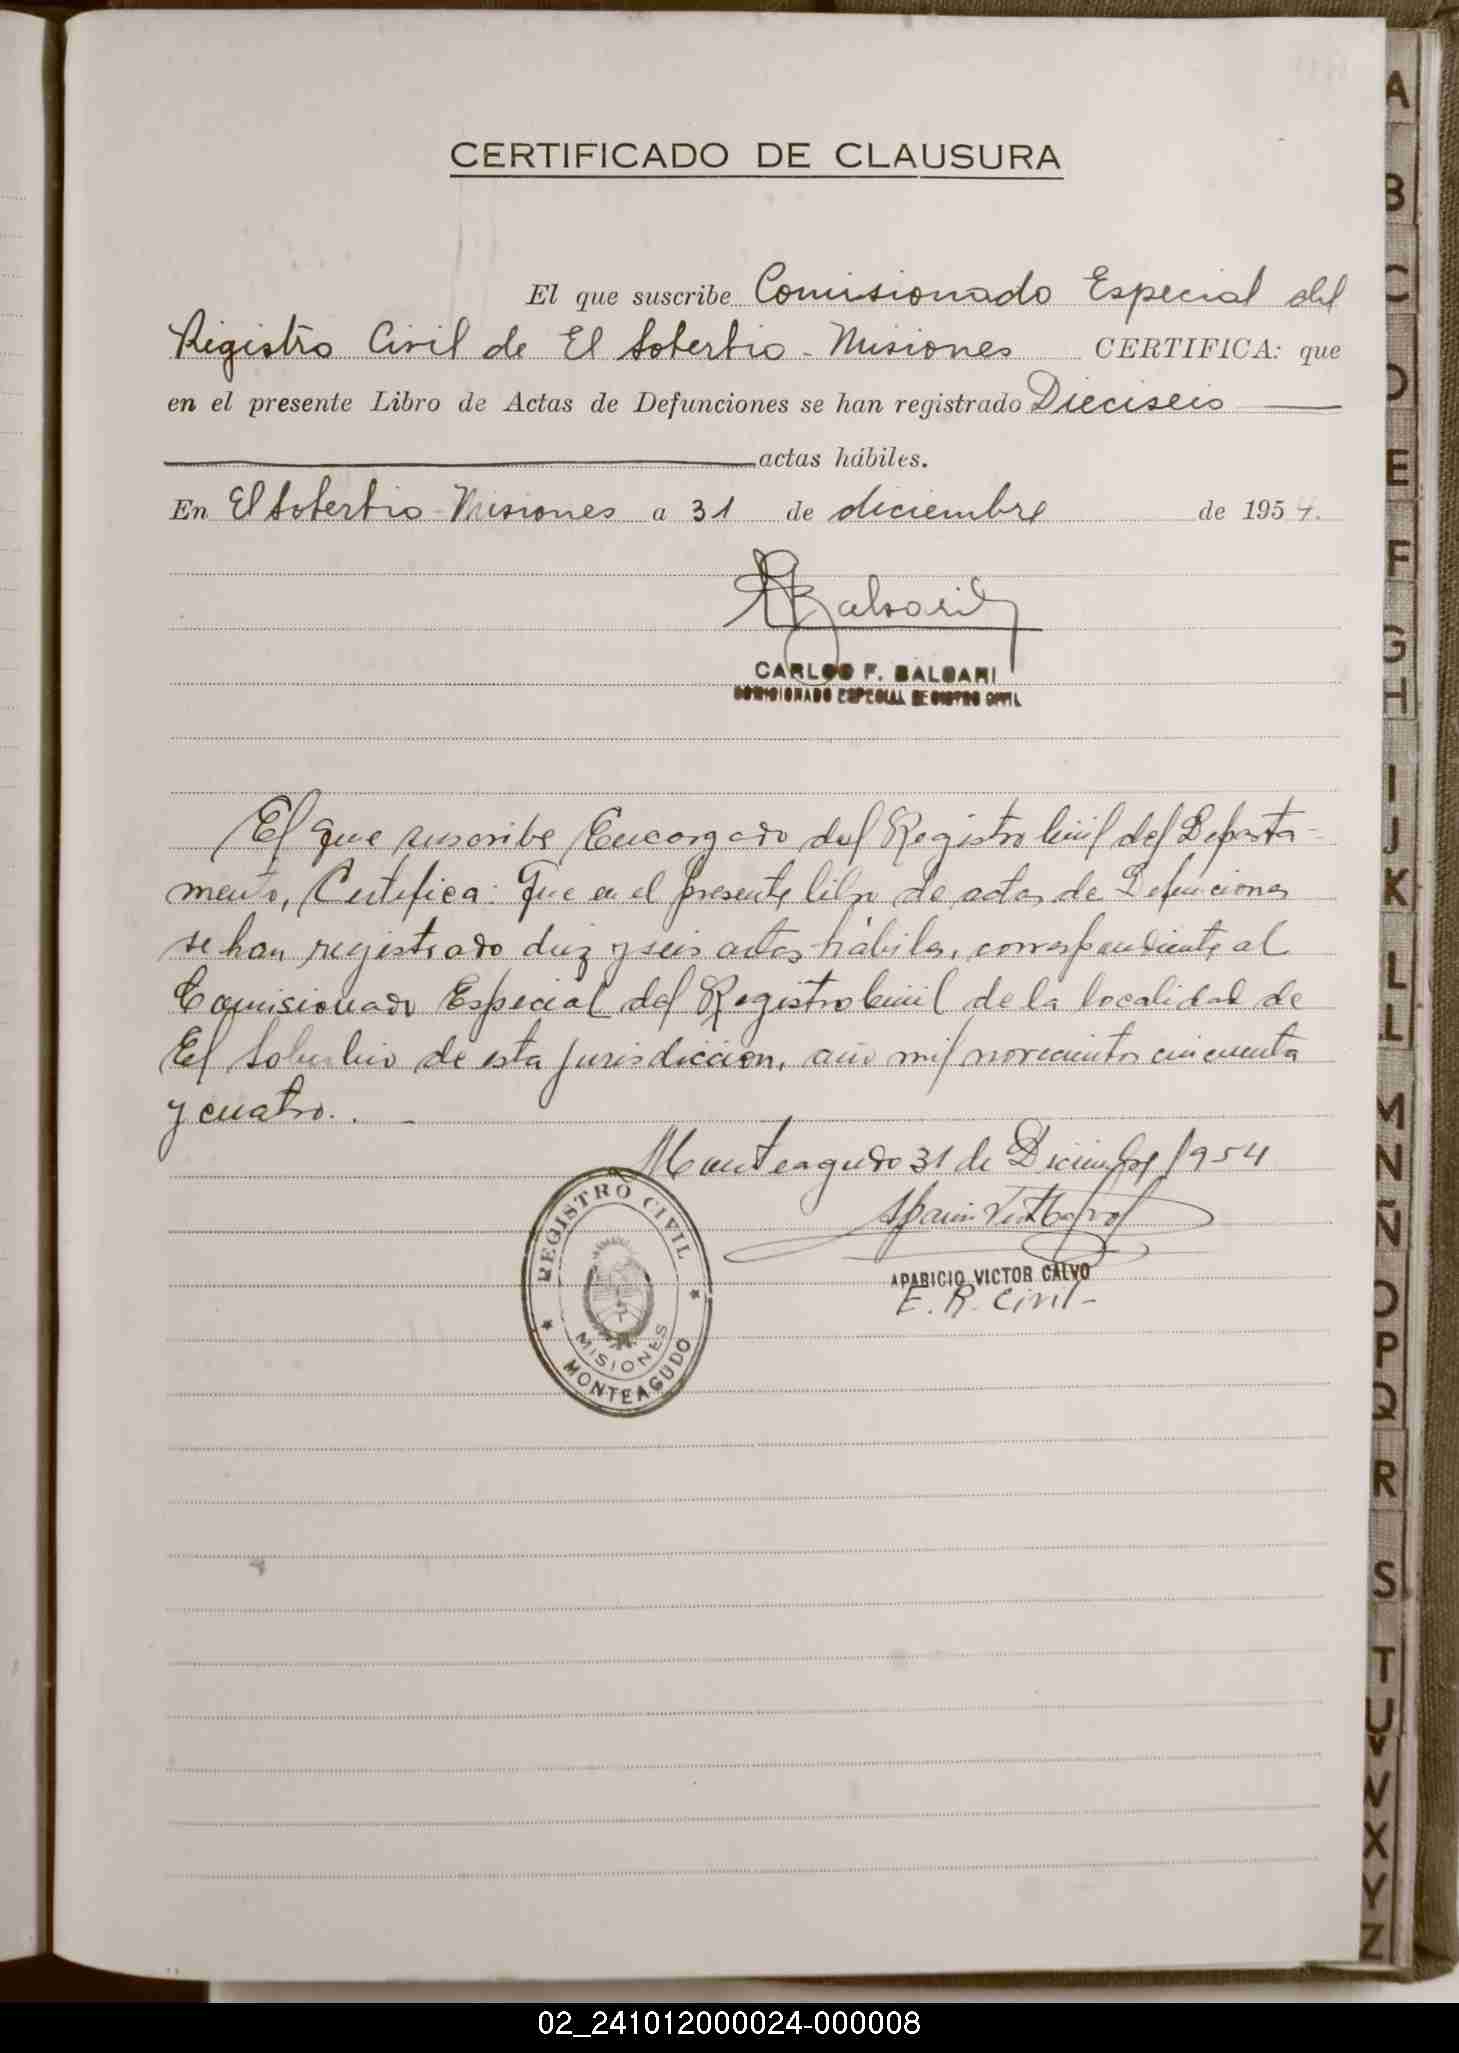 CERTIFICADO DE CLAUSURA
El que suscribe Comisionado Especial del
Registro Civil de El Soberbio - Misiones CERTIFICA: que
en el presente Libro de Actas de Defunciones se han registrado Dieciseis
actas hábiles.
En El Soberbio - Misiones a 31 de diciembre de 1954.
CARLOS F. BALSARI
COMISIONADO ESPECIAL REGISTRO CIVIL
El que suscribe Encargado del Registro Civil del Departa-
mento, Certifica: Que en el presente libro de actas de Defunciones
se han registrado diez y seis actas hábiles, correspondiente al
Comisionado Especial del Registro Civil de la localidad de
El Soberbio de esta jurisdiccion, año mil novecientos cincuenta
y cuatro. . -
Monteagudo 31 de Diciembre 1954
APARICIO VICTOR CALVO
E. R. Civil -
REGISTRO CIVIL
MISIONES
MONTEAGUDO
A
B
C
D
E
F
G
H
I
J
K
L
LL
M
N
Ñ
O
P
Q
R
S
T
U
V
W
X
Y
Z
02_241012000024-000008